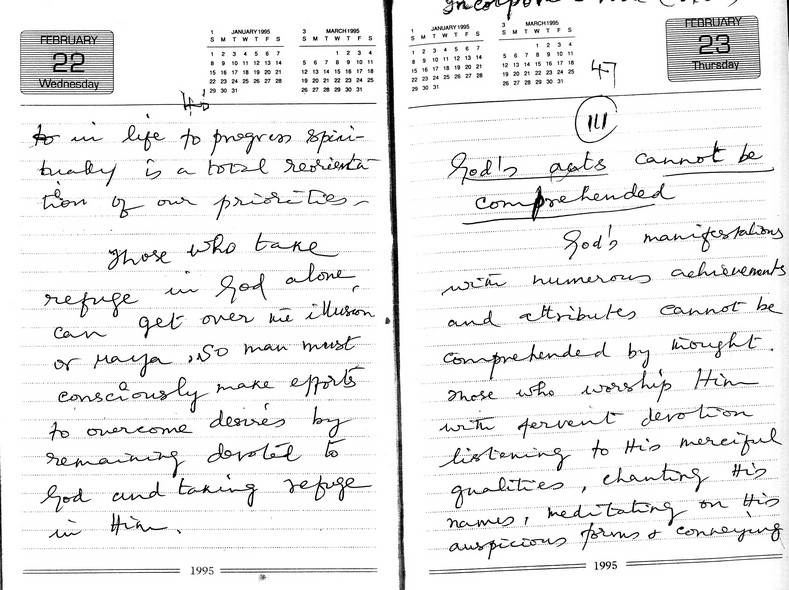 FEBRUARY
22
Wednesday
1 JANUARY 1995
S M T W T F S
1 2 3 4 5 6 7
8 9 10 11 12 13 14
15 16 17 18 19 20 21
22 23 24 25 26 27 28
29 30 31
3 MARCH 1995
S M T W T F S
1 2 3 4
5 6 7 8 9 10 11
12 13 14 15 16 17 18
19 20 21 22 23 24 25
26 27 28 29 30 31
in life to progress spiri-
tually is a total reorienta-
tion of our priorities.
Those who take
refuge in God alone
can get over the illusion
or Maya, so man must
consciously make efforts
to overcome desires by
remaining devoted to
God and taking refuge
in Him.
1995
1 JANUARY 1995
S M T W T F S
1 2 3 4 5 6 7
8 9 10 11 12 13 14
15 16 17 18 19 20 21
22 23 24 25 26 27 28
29 30 31
3 MARCH 1995
S M T W T F S
1 2 3 4
5 6 7 8 9 10 11
12 13 14 15 16 17 18
19 20 21 22 23 24 25
26 27 28 29 30 31
FEBRUARY
23
Thursday
47
III
God's cannot be
comprehended
God's manifestations
with numerous achievements
and attributes cannot be
comprehended by thought.
Those who worship Him
with fervent devotion
listening to His merciful
qualities, chanting His
names, meditating on His
auspicious forms & conveying
1995